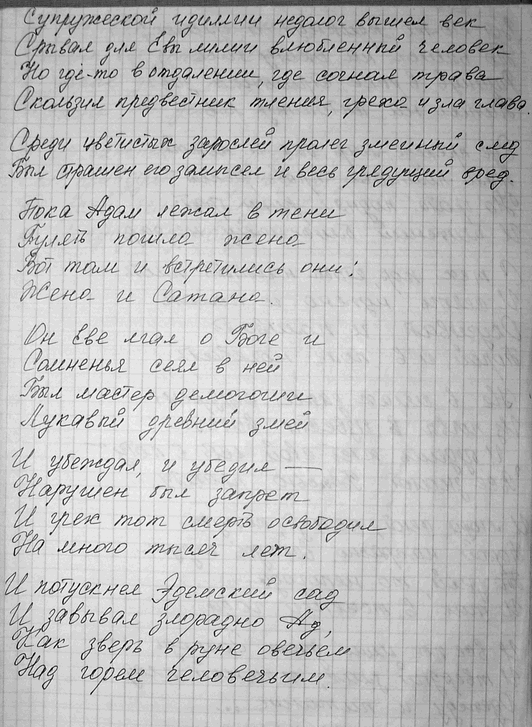 Супружеской идиллии недолог вышел век
Срывал для Евы лилии влюбленный человек
Но где-то в отдалении, где сочная трава
Скользил предвестник тления, греха и зла глава.
Среди цветистых зарослей пролег змеиный след
Был страшен его замысел и весь грядущий вред.
Пока Адам лежал в тени
Гулять пошла жена
Вот там и встретились они:
Жена и Сатана.
Он Еве лгал о Боге и
Сомненья сеял в ней
Был мастер демогогии
Лукавый древний змей
И убеждал, и убедил —
Нарушен был запрет
И грех тот смерть освободил
На много тысяч лет.
И потускнел Эдемский сад
И завывал злорадно Ад,
Как зверь в руне овечьем
Над горем человечьим.